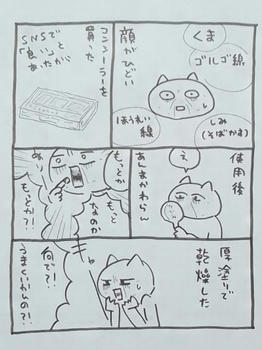 くま
ゴルゴ線
顔がひどい
ほうれい線
しみ
(そばかす)
コンシーラーを
買った
SNSで
「良い」と
あったが
使用後
え
あんまかわらん
もっとか
もっと
なのか
もっとか?!
厚塗りで
乾燥した
何で?!
うまくいかんの?!